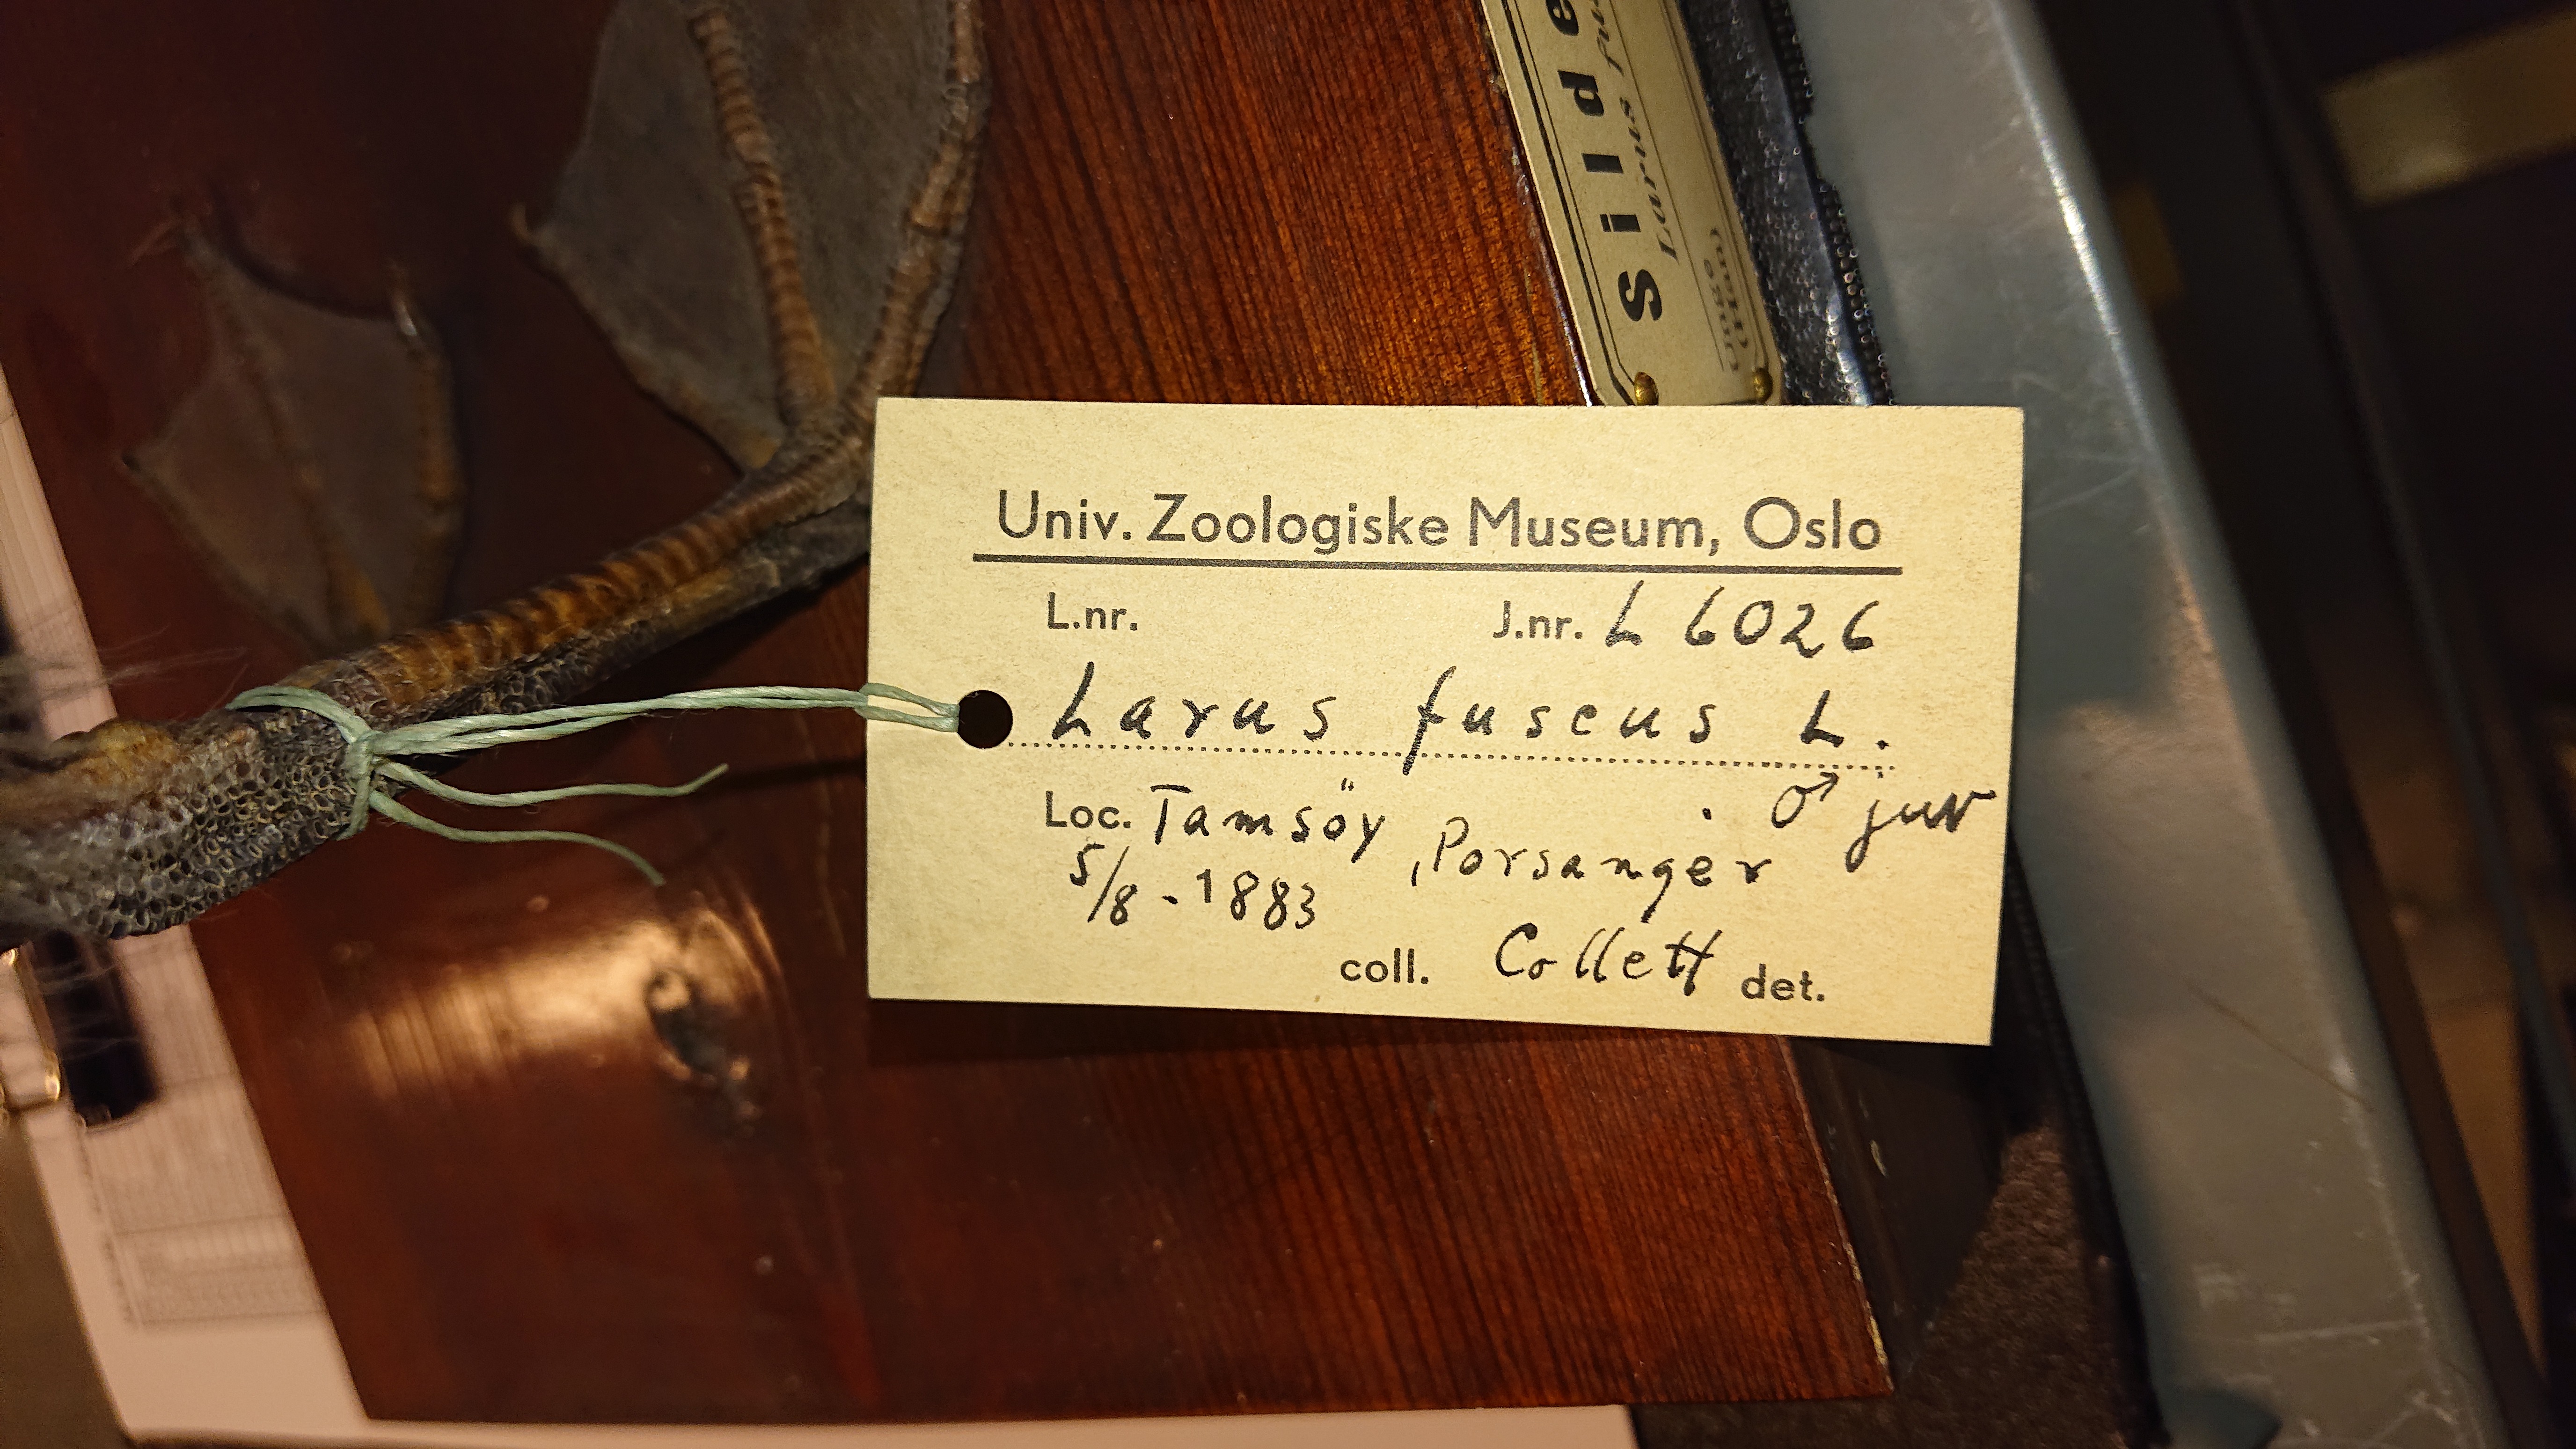 Silde
Larus fus
Unge
(Ham)
Univ. Zoologiske Museum, Oslo
L.nr. J.nr. L 6026
Larus fuscus L.
Loc. Tamsöy, Porsanger . ♂ juv
5/8 - 1883
coll. Collett det.